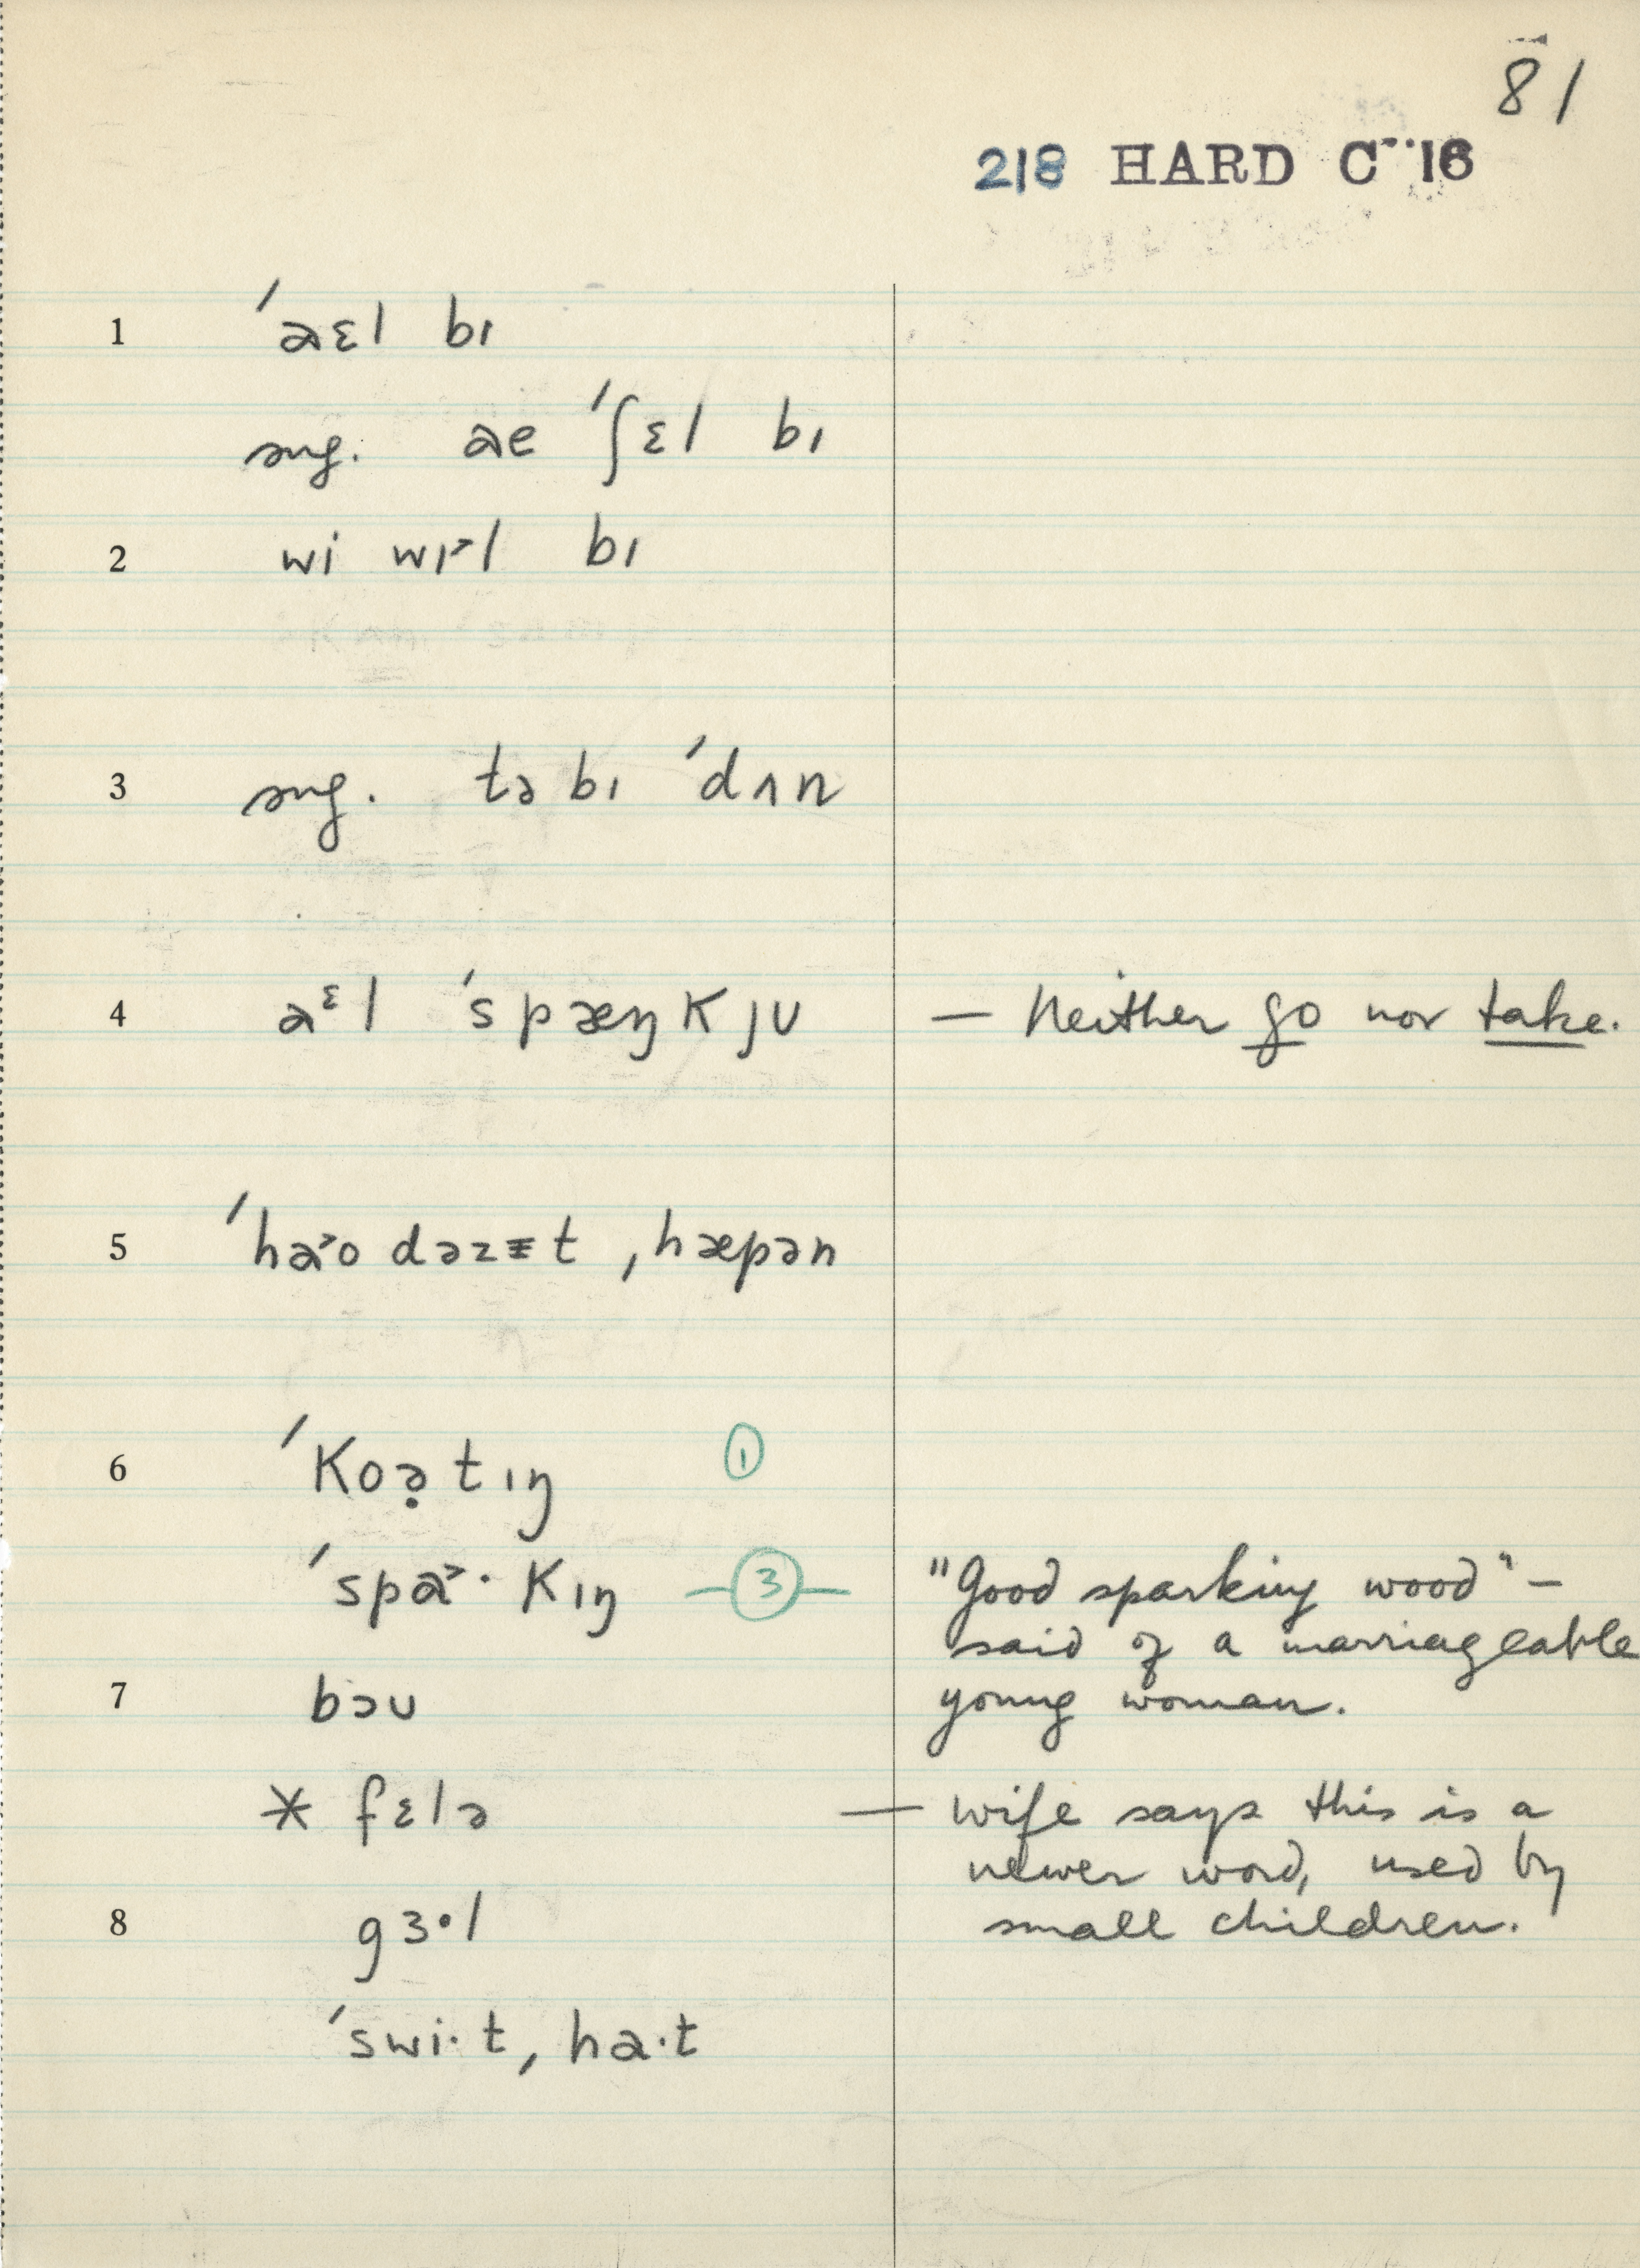 81
218 HARD C''16
1 ˈaɛl bɪ
sug. ae ˈʃɛl bɪ
2 wi wɪ˃l bɪ
3 sug. tə bɪ ˈdʌn
4 aᵋl ˈspæŋkjʊ — Neither go nor take.
5 ˈha˃o dəzᵻt ˌhæpən
6 ˈkoə̣tɪŋ ①
ˈspa˃·kɪŋ —③— "Good sparking wood" –
said of a marriageable
7 bɔʊ young woman.
* fɛlə — wife says this is a
newer word, used by
8 gɜ·l small children.
ˈswi·t ˌha·t